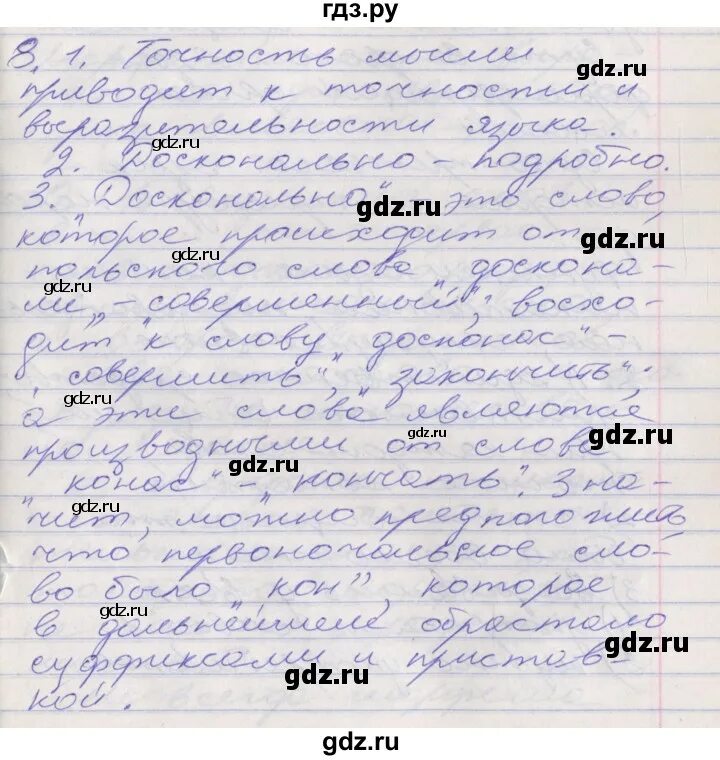 гдз.ру
8. 1. Точность мысли
gdz.ru
приводит к точности и
gdz.ru
выразительности языка.
gdz.ru
2. Досконально – подробно.
3. „Досконально" – это слово,
gdz.ru
которое происходит от
gdz.ru
gdz.ru
польского слова „доскона-
ли„ – „совершенный"; восхо-
дит к слову „досконас" –
gdz.ru
„совершить", „закончить";
gdz.ru
а эти слова являются
производными от слова
gdz.ru
gdz.ru
„конас" – „кончать". Зна-
чит, можно предположить
gdz.ru
что первоначальное сло-
во было „кон", которое
gdz.ru
в дальнейшем обрастало
gdz.ru
суффиксами и пристав-
gdz.ru
кой.
gdz.ru